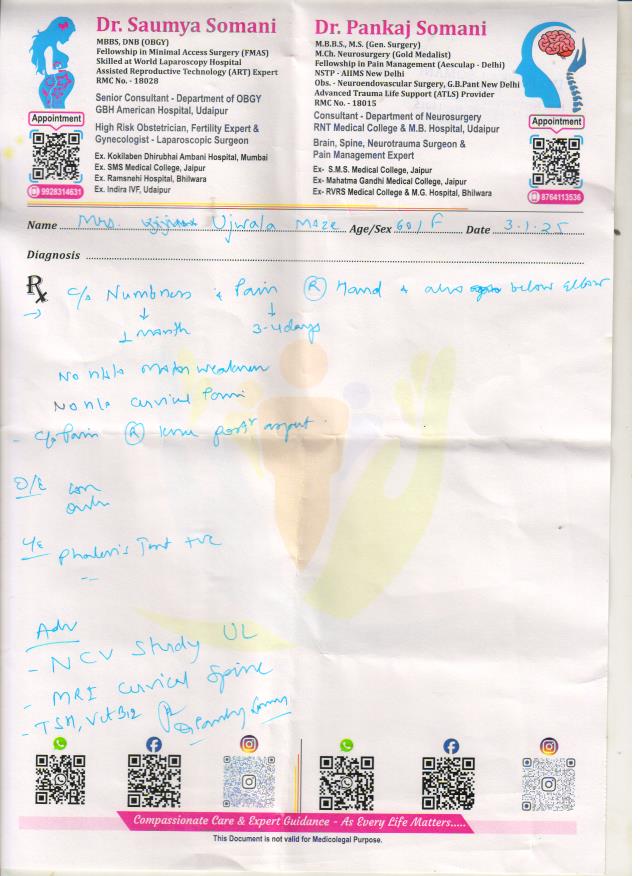 Dr. Saumya Somani
MBBS, DNB (OBGY)
Fellowship in Minimal Access Surgery (FMAS)
Skilled at World Laparoscopy Hospital
Assisted Reproductive Technology (ART) Expert
RMC No. - 18028
Senior Consultant - Department of OBGY
GBH American Hospital, Udaipur
High Risk Obstetrician, Fertility Expert &
Gynecologist - Laparoscopic Surgeon
Ex. Kokilaben Dhirubhai Ambani Hospital, Mumbai
Ex. SMS Medical College, Jaipur
Ex. Ramsnehi Hospital, Bhilwara
Ex. Indira IVF, Udaipur
Appointment
9928314631
Dr. Pankaj Somani
M.B.B.S., M.S. (Gen. Surgery)
M.Ch. Neurosurgery (Gold Medalist)
Fellowship in Pain Management (Aesculap - Delhi)
NSTP - AIIMS New Delhi
Obs. - Neuroendovascular Surgery, G.B.Pant New Delhi
Advanced Trauma Life Support (ATLS) Provider
RMC No. - 18015
Consultant - Department of Neurosurgery
RNT Medical College & M.B. Hospital, Udaipur
Brain, Spine, Neurotrauma Surgeon &
Pain Management Expert
Ex- S.M.S. Medical College, Jaipur
Ex- Mahatma Gandhi Medical College, Jaipur
Ex- RVRS Medical College & M.G. Hospital, Bhilwara
Appointment
8764113536
Name Mrs. Ujwala Age/Sex 60/F Date 3.1.25
Diagnosis
Rx C/o Numbness & Pain (R) Hand & also below Elbow
1 month 3-4 days
No h/o motor weakness
No h/o cervical Pain
- C/o Pain (R) knee post aspect
O/E
Phalen's Test +ve
Adv
- NCV Study UL
- MRI Cervical Spine
- TSH, Vit B12
Compassionate Care & Expert Guidance - As Every Life Matters.....
This Document is not valid for Medicolegal Purpose.